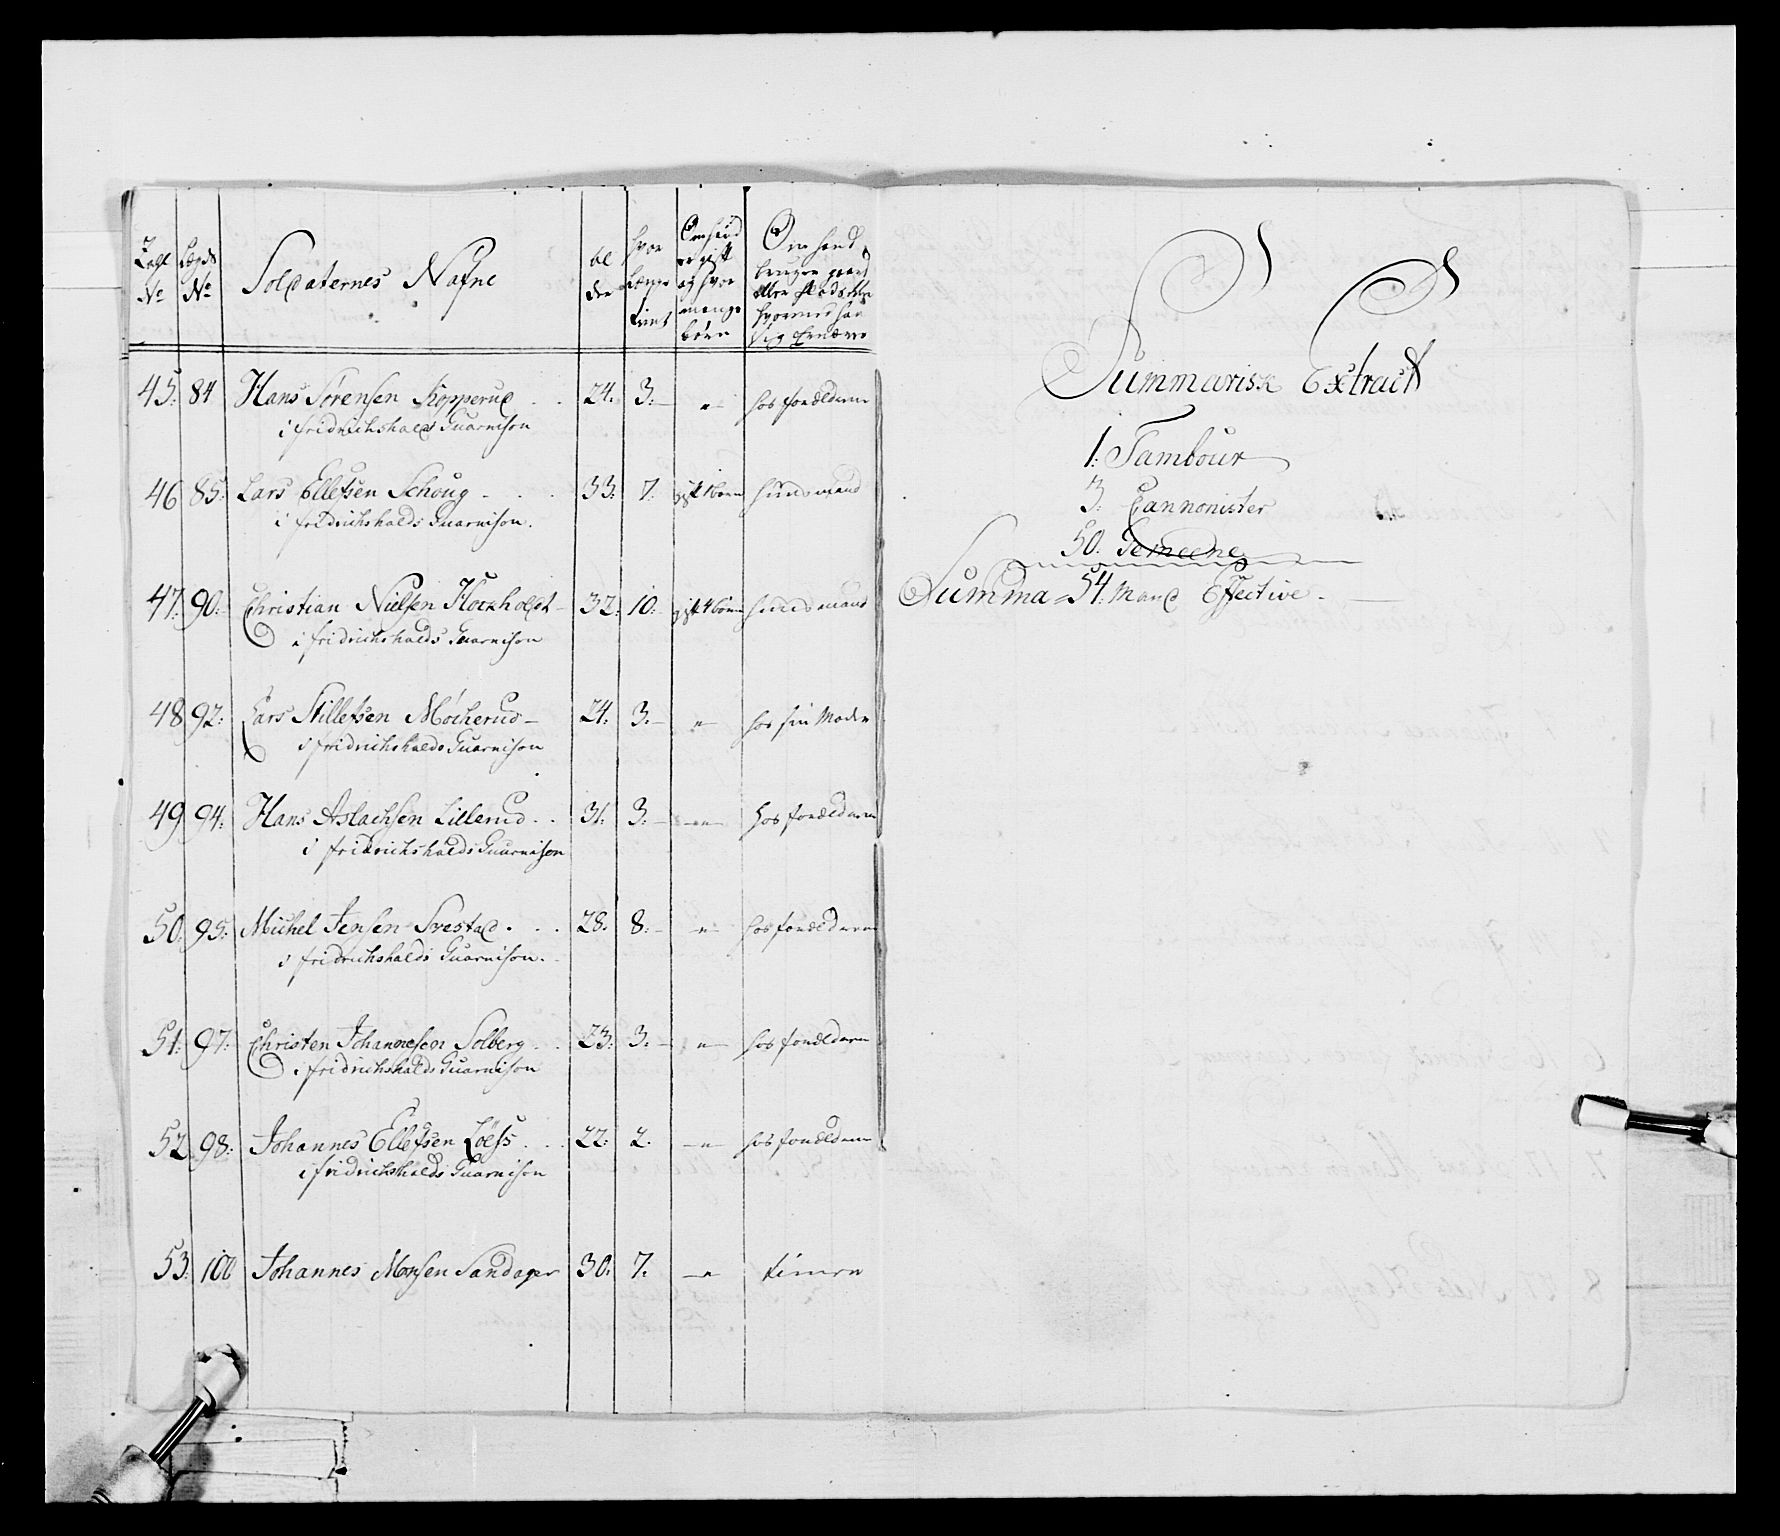 Tall No
Lægds No
Soldaternes Nafne
al der
hvor længe tient
Om hand er gift og hvor mange børn
Om hand bruger gaard eller pladstæ hvormed han sig Ernærer
45. 84 Hans Sørensen Kopperud 24. 3. " hos forældrene
i fridrichshalds Guarnison
46 85. Lars Ellefsen Schoug 33. 7. gift 1 børn huusmand
i fridrichshalds Guarnison.
47. 90. Christian Nielsen 32. 10. gift 4 børn huusmand
i fridrichshalds Guarnison
48 92. Lars Møcherud 24. 3. " hos sin Moder
i fridrichshalds Guarnison
49 94. Hans Aslachsen Lillerud 31. 3. " hos forældrene
i fridrichshalds Guarnison
50. 95. Michel Jensen Svestad 28. 8. " hos forældrene
i fridrichshalds Guarnison.
51. 97. Christen Johannesen Solberg 23. 3. " hos forældrene
i fridrichshalds Guarnison
52 98. Johannes Ellefsen 22. 2. " hos forældrene
i fridrichshalds Guarnison
53. 100 Johannes Monsen Sandager 30. 7. " tiener
Summarisk Extract
1. Tambour
3. Cannonister
50. Gemeene
Summa = 54. Mand Effective.